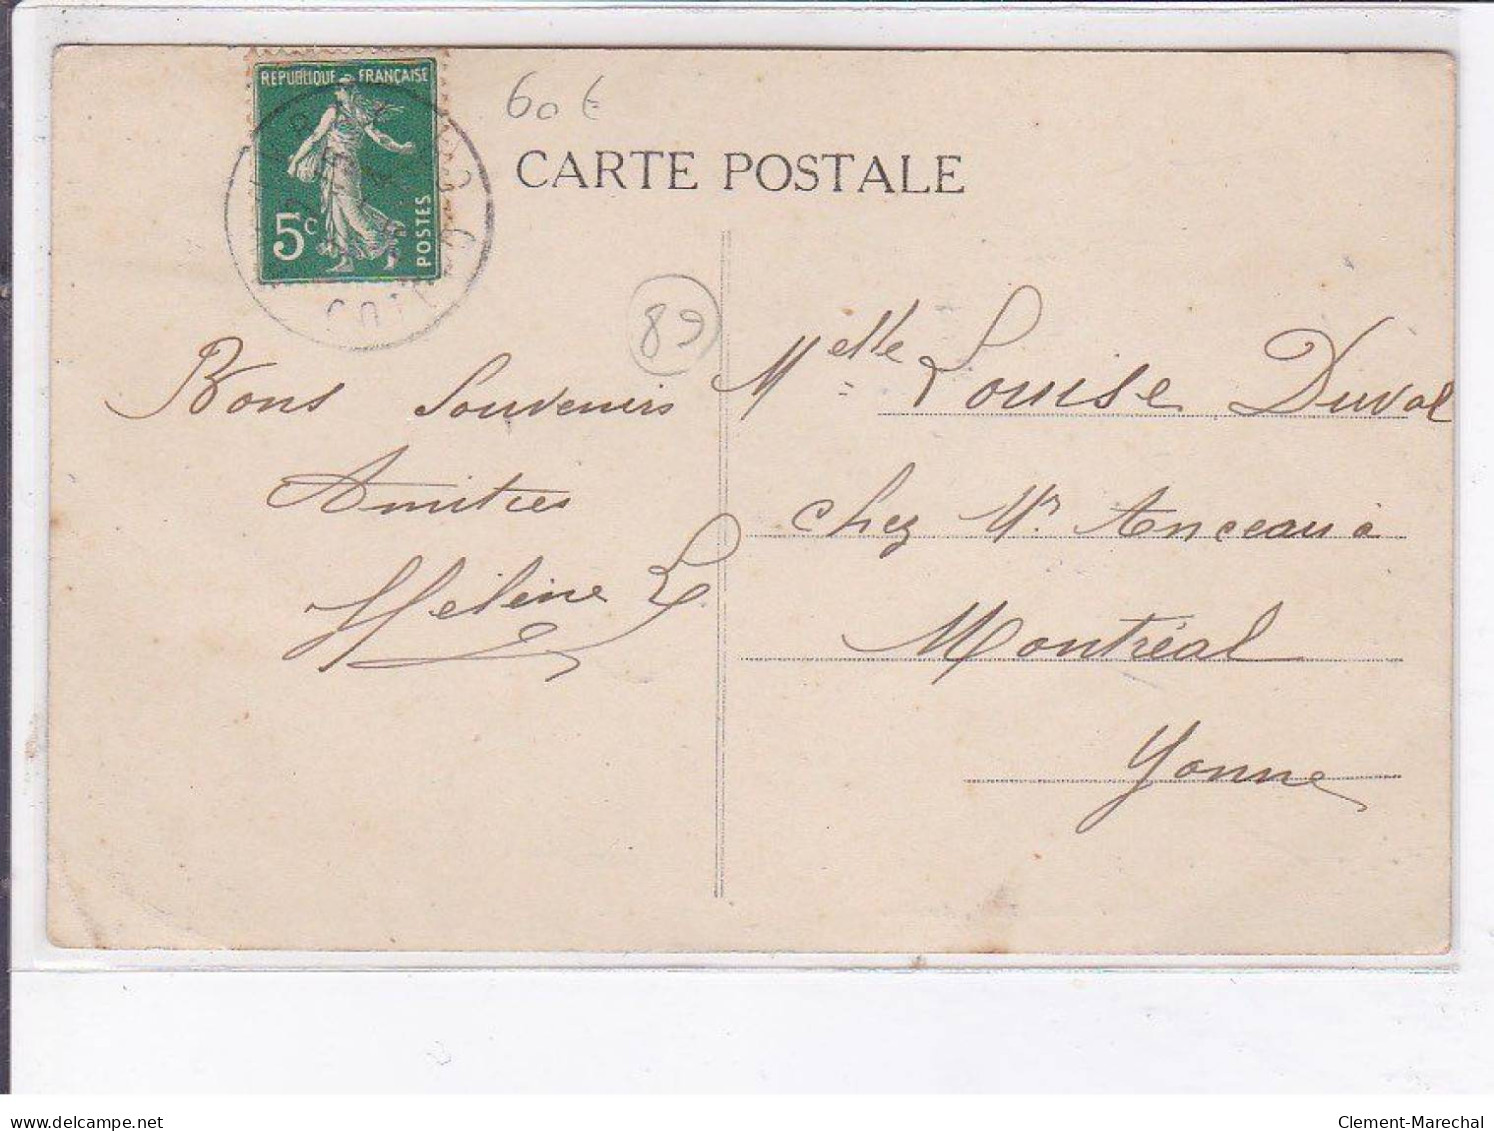 60 €
REPUBLIQUE FRANÇAISE
5c
POSTES
CARTE POSTALE
89
Bons Souvenirs
Amitiés
Hélène L
Melle Louise Duval
chez Mr Anceau à
Montréal
Yonne
delcampe.net
Clement-Marechal